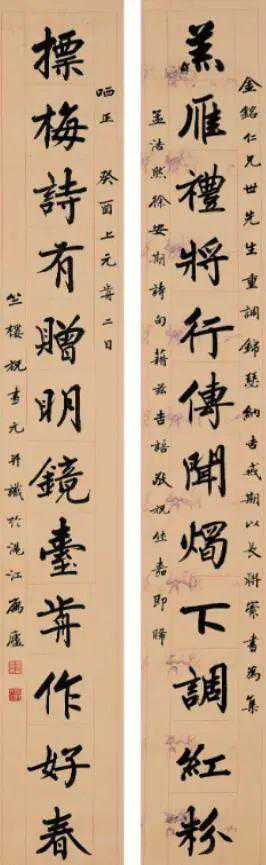 金銘仁兄世先生重調錦瑟納吉戒期以長聯索書為集
羔雁禮將行傳聞燭下調紅粉
孟浩然徐安期詩句藉茲吉語敬祝嘉即
摽梅詩有贈明鏡臺歬作好春
哂正 癸酉上元歬二日
竺樓祝書元并識於滬江寓廬